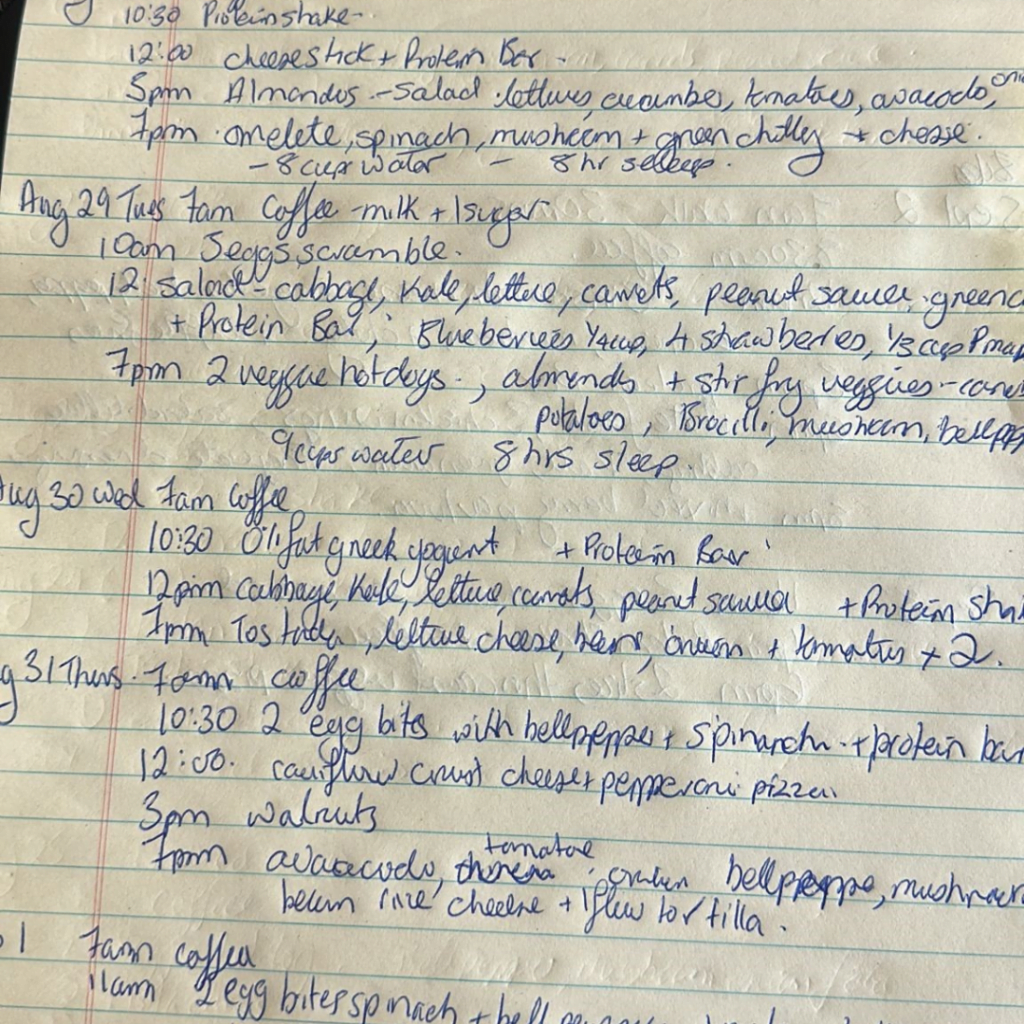 10:30 Protein shake -
12:00 cheese stick + Protein Bar -
5pm Almondos - Salad . lettuce, cucumber, tomatoes, avacodo,
7pm . omelete, spinach, mushroom + green chilly + cheese.
- 8 cup water - 8 hr sleep.
Aug 29 Tues 7am Coffee - milk + 1 sugar
10am 3 eggs scramble.
12 salad - cabbage, Kale, lettuce, carrots, peanut sauce,
+ Protein Bar, Blueberries 1/4 cup, 4 strawberies, 1/3 cup
7pm 2 veggie hotdogs . , almonds + stir fry veggies -
potatoes, Brocilli, mushroom,
9 cups water 8 hrs sleep.
Aug 30 Wed 7am Coffee
10:30 0% fat greek yogurt + Protein Bar
12pm Cabbage, Kale, lettuce, carrots, peanut sauce + Protein
7pm Tostada, lettuce cheese, beans, onion + tomatoes + 2.
31 Thurs. 7am coffee
10:30 2 egg bits with bellpepper + spinach + protein bar
12:00. cauliflower crust cheese + pepperoni pizza.
3pm walnuts
tomatoe
7pm avaacodo, bellpeppe,
rice cheese + 1 flour tortilla.
1 7am coffee
11am 2 egg bites spinach +